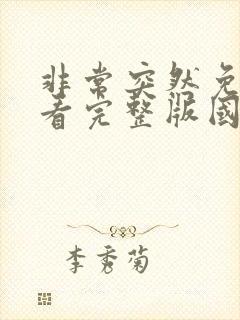 非常突然免
看完整版國
李秀菊